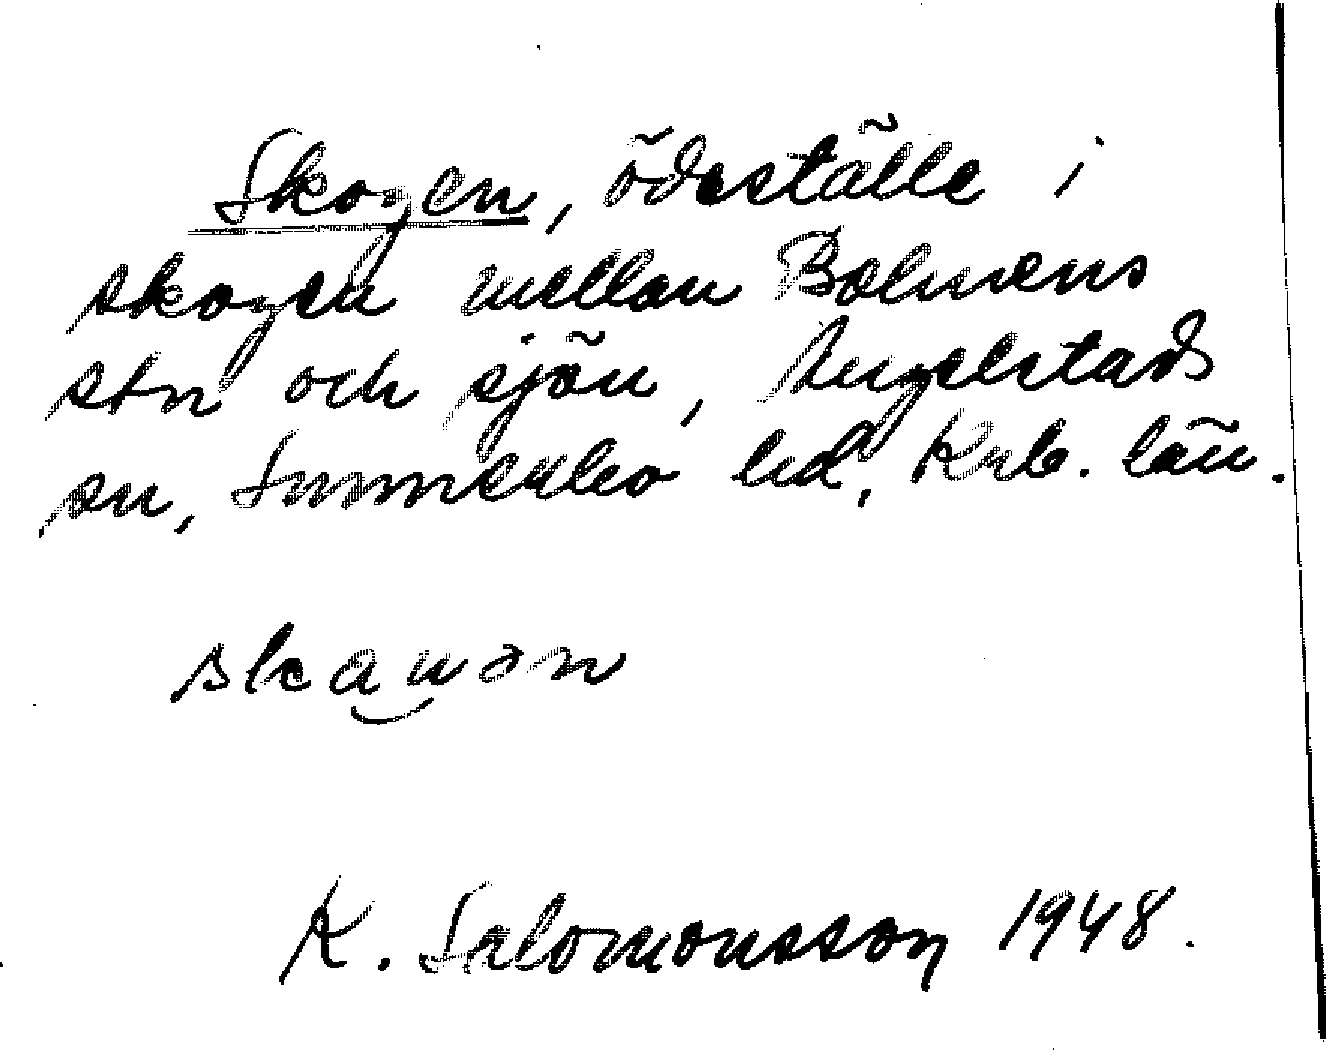 Skogen, ödeställe i
skogen mellan Bolmens
stn och sjön, Angelstads
sn, Sunnerbo hd, Krb. län.
skawan
K. Salomonsson 1948.